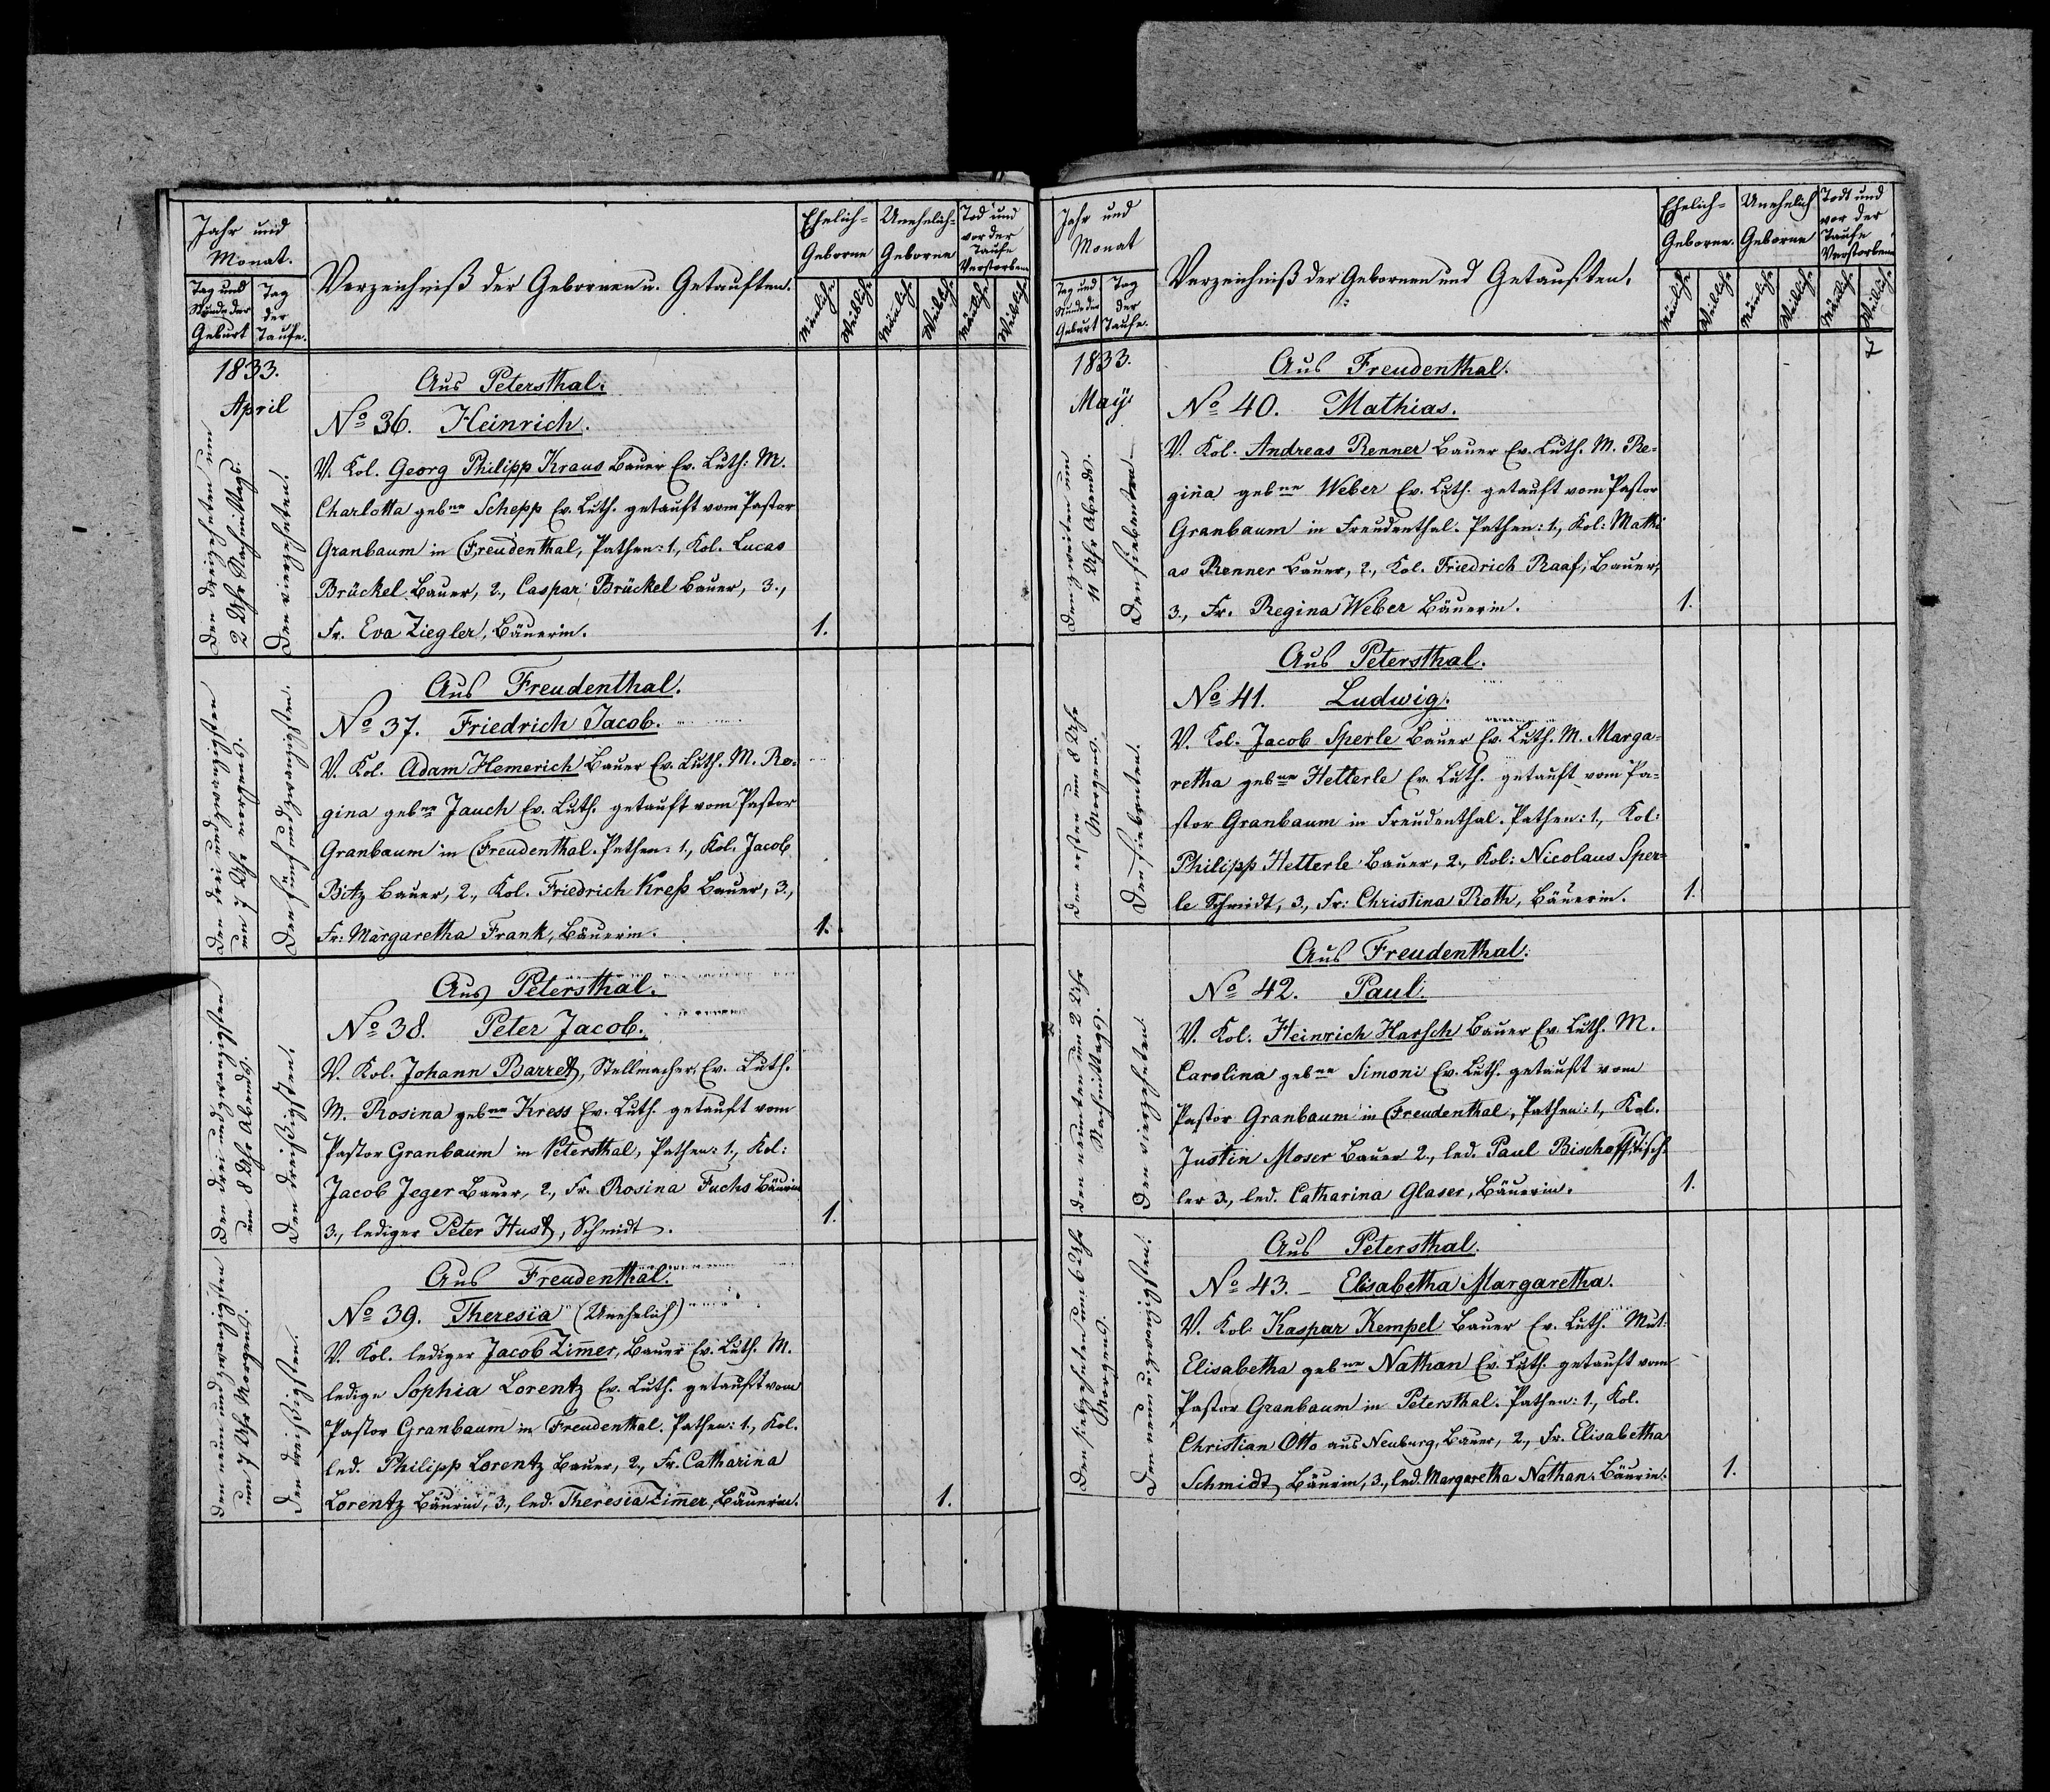 Jahr und
Monat.
Tag und
Stunde der
Geburt
Tag
der
Taufe.
Verzeichniß der Gebornen u. Getauften.
Ehelich=
Geborne
Unehelich=
Geborne
Tod und
vor der
Taufe
Verstorbene
Mänliche
Weibliche
Mänliche
Weibliche
Mänliche
Weibliche
1833.
April
Den dreizehnten um
2 Uhr Nachmittags.
Den vierzehnten.
Aus Petersthal.
No 36. Heinrich.
V. Kol. Georg Philipp Kraus Bauer Ev. Luth: M.
Charlotta gebne Schepp Ev. Luth. getauft vom Pastor
Granbaum in Freudenthal, Pathen: 1., Kol. Lucas
Brückel Bauer, 2., Caspar Brückel Bauer, 3.,
Fr. Eva Ziegler, Bäuerin. 1.
Den drei und zwanzigsten
um 7 Uhr morgens.
Den fünf und zwanzigsten.
Aus Freudenthal.
No 37. Friedrich Jacob.
V. Kol. Adam Hemerich Bauer Ev. Luth. M. Re-
gina gebne Jauch Ev. Luth. getauft vom Pastor
Granbaum in Freudenthal. Pathen: 1., Kol. Jacob
Bitz Bauer, 2., Kol. Friedrich Kreß Bauer, 3.,
Fr: Margaretha Frank, Bäuerin. 1.
Den drei und zwanzigsten
um 8 Uhr Abends.
Den dreißigsten.
Aus Petersthal.
No 38. Peter Jacob.
V. Kol. Johann Barret, Stellmacher, Ev. Luth.
M. Rosina gebne Kress Ev. Luth. getauft vom
Pastor Granbaum in Petersthal, Pathen: 1., Kol:
Jacob Jeger Bauer, 2., Fr. Rosina Fuchs Bäurin
3., lediger Peter Hust, Schmidt. 1.
Den neun und zwanzigsten
um 7 Uhr Morgens.
Den dreißigsten.
Aus Freudenthal.
No 39. Theresia (Unehelich)
V. Kol. lediger Jacob Zimer, Bauer Ev. Luth. M.
ledige Sophia Lorentz Ev. Luth. getauft vom
Pastor Granbaum in Freudenthal. Pathen: 1., Kol.
led. Philipp Lorentz Bauer, 2., Fr. Catharina
Lorentz Bäurin, 3., led. Theresia Zimmer, Bäuerin. 1.
Jahr und
Monat
Tag und
Stunde der
Geburt
Tag
der
Taufe.
Verzeichniß der Gebornen und Getauften.
Ehelich=
Geborne.
Unehelich
Geborne
Todt und
vor der
Taufe
Verstorbene
Mänliche
Weibliche
Mänliche
Weibliche
Mänliche
Weibliche
7
1833.
May.
Den zweiten um
11 Uhr Abends.
Den siebenten
Aus Freudenthal.
No 40. Mathias.
V. Kol. Andreas Renner Bauer Ev. Luth. M. Re-
gina gebne Weber Ev. Luth. getauft vom Pastor
Granbaum in Freudenthal. Pathen: 1., Kol: Mathi
as Renner Bauer, 2., Kol. Friedrich Raaf, Bauer,
3., Fr. Regina Weber Bäuerin. 1.
Den ersten um 8 Uhr
Morgens.
Den siebenten.
Aus Petersthal.
No 41. Ludwig.
V. Kol. Jacob Sperle Bauer Ev. Luth. M. Marga-
retha gebne Hetterle Ev. Luth. getauft vom Pa-
stor Granbaum in Freudenthal. Pathen: 1., Kol:
Philipp Hetterle Bauer, 2., Kol: Nicolaus Sper-
le Schmidt, 3., Fr: Christina Roth, Bäuerin. 1.
Den neunten um 2 Uhr
Nachmittags.
Den vierzehnten.
Aus Freudenthal.
No 42. Paul.
V. Kol. Heinrich Harsch Bauer Ev. Luth. M.
Carolina gebne Simoni Ev. Luth. getauft vom
Pastor Granbaum in Freudenthal, Pathen: 1., Kol.
Justin Moser Bauer 2., led. Paul Bischoff, Tisch-
ler 3., led. Catharina Glaser, Bäuerin. 1.
Den siebzehnten um 6 Uhr
Morgens.
Den neunzwanzigsten.
Aus Petersthal.
No 43. - Elisabetha Margaretha.
V. Kol. Kaspar Kempel Bauer Ev. Luth. Mut.
Elisabetha gebne Nathan Ev. Luth. getauft vom
Pastor Granbaum in Petersthal. Pathen: 1., Kol.
Christian Otto aus Neuburg, Bauer, 2., Fr. Elisabetha
Schmidt, Bäurin, 3., led. Margaretha Nathan, Bäurin. 1.